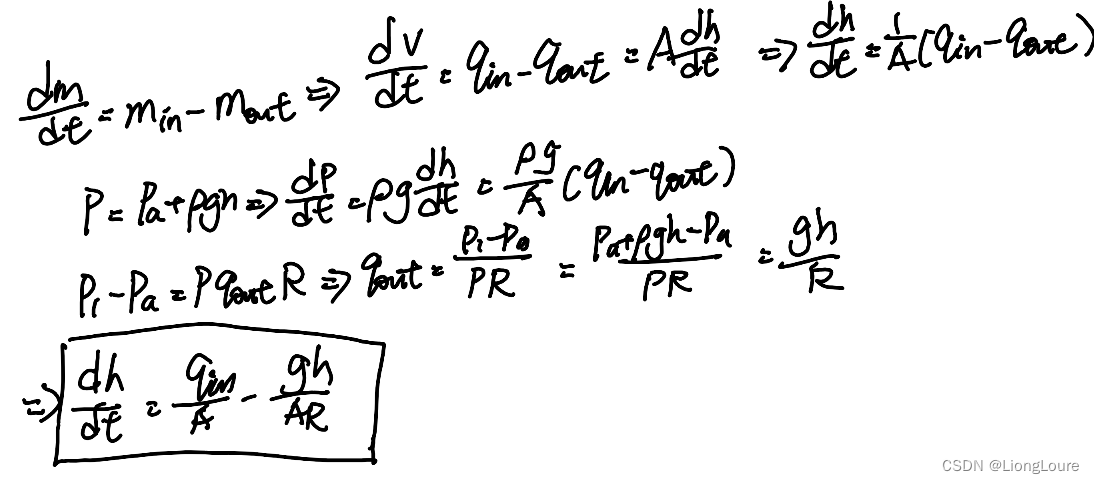 dm/dt = min - mout => dv/dt = qin - qout = A dh/dt => dh/dt = 1/A (qin - qout)
P = Pa + ρgh => dP/dt = ρg dh/dt = ρg/A (qin - qout)
P1 - Pa = ρ qout R => qout = (P1 - Pa)/ρR = (Pa + ρgh - Pa)/ρR = gh/R
=> dh/dt = qin/A - gh/AR
CSDN @LiongLoure